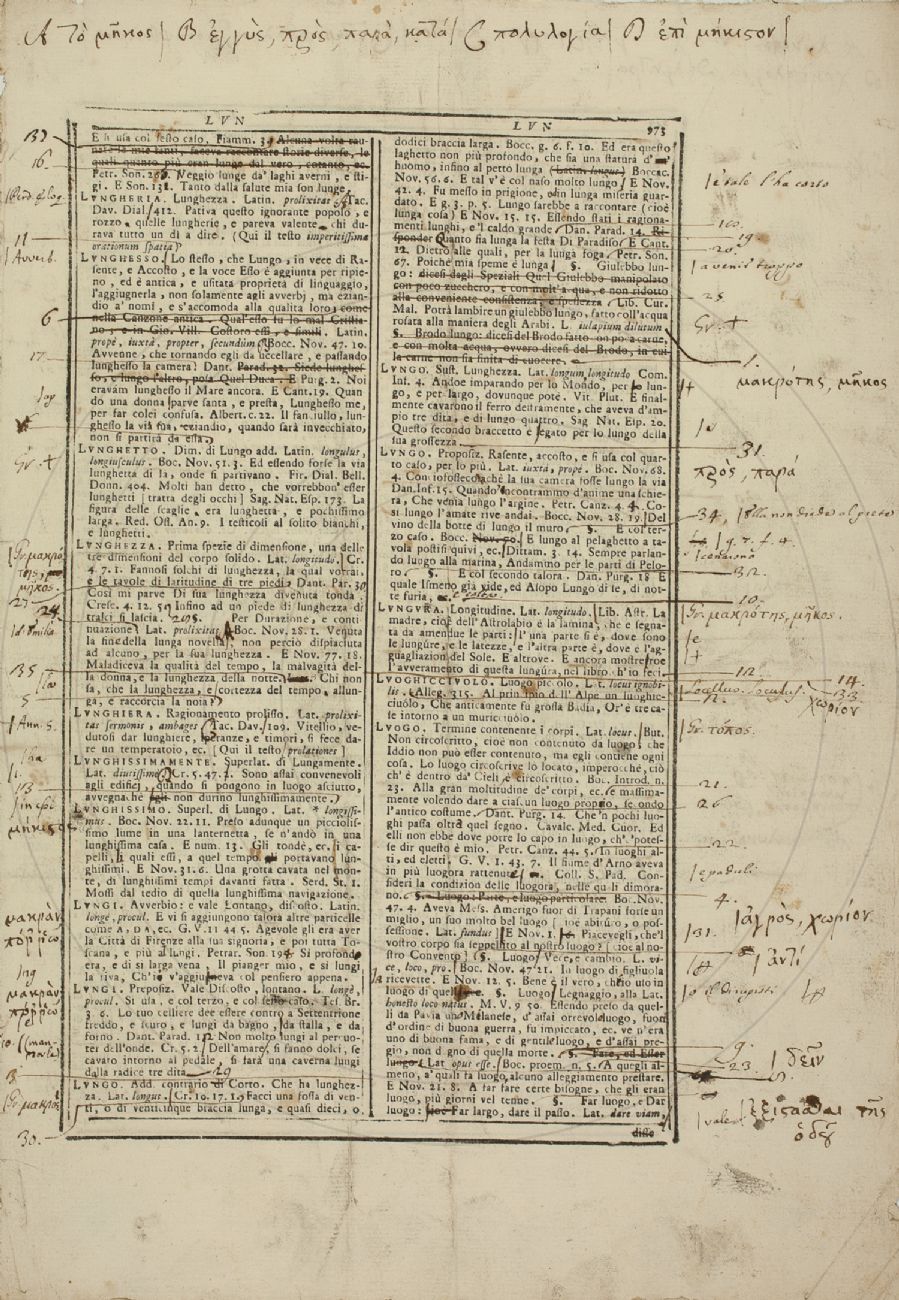 A τὸ μῆκος | B ἐγγὺς, πρὸς, παρὰ, κατά | C πολυλογία | D ἐπὶ μήκιστον |
LVN
LVN 973
E si usa col sesto caso. Fiamm. 3. Alcuna volta rau-
nate le mie fanti, faceva raccontare storie diverse, le
quali quanto più eran lungo dal vero, cotanto, ec.
Petr. Son. Veggio lunge da' laghi averni, e sti-
gi. E Son. 131. Tanto dalla salute mia son lunge.
LVNGHERIA. Lunghezza. Latin. prolixitas Tac.
Dav. Dial. 412. Pativa questo ignorante popolo, e
rozzo quelle lungherie, e pareva valente chi du-
rava tutto un dì a dire. (Qui il testo imperitissimæ
orationum spatia)
LVNGHESSO. Lo stesso, che Lungo, in vece di Ra-
sente, e Accosto, e la voce Esso è aggiunta per ripie-
no, ed è antica, e usitata proprietà di linguaggio,
l'aggiugnerla, non solamente agli avverbj, ma ezian-
dio a' nomi, e s'accomoda alla qualità loro, come
nella Canzone antica. Qual'esso fu lo mal Cristia-
no; e in Gio. Vill. Costoro essi, e simili. Latin.
propè, iuxtà, propter, secundùm Bocc. Nov. 47. 10.
Avvenne, che tornando egli da uccellare, e passando
lunghesso la camera! Dant. Parad. 32. Siede lunghes-
so, e lungo l'altro, posa Quel Duca. E Purg. 2. Noi
eravam lunghesso il Mare ancora. E Cant. 19. Quan-
do una donna parve santa, e presta, Lunghesso me,
per far colei confusa. Albert. c. 22. Il fanciullo, lun-
ghesso la via sua, eziandio, quando sarà invecchiato,
non si partirà da essa.
LVNGHETTO. Dim. di Lungo add. Latin. longulus,
longiusculus. Boc. Nov. 51. 3. Ed essendo forse la via
lunghetta di là, onde si partivano. Fir. Dial. Bell.
Donn. 404. Molti han detto, che vorrebbon' esser
lunghetti [tratta degli occhi] Sag. Nat. Esp. 173. La
figura delle scaglie era lunghetta, e pochissimo
larga. Red. Oss. An. 9. I testicoli al solito bianchi,
e lunghetti.
LVNGHEZZA. Prima spezie di dimensione, una delle
tre dimensioni del corpo solido. Lat. longitudo. Cr.
4. 7. 1. Fannosi solchi di lunghezza, la qual vorrai,
e le tavole di latitudine di tre piedi. Dant. Par. 30
Così mi parve Di sua lunghezza divenuta tonda.
Cresc. 4. 12. 5. Infino ad un piede di lunghezza di
tralci si lascia. §. Per Durazione, e conti-
nuazione Lat. prolixitas Boc. Nov. 28. 1. Venuta
la fine della lunga novella, non perciò dispiaciuta
ad alcuno, per la sua lunghezza. E Nov. 77. 18.
Maladiceva la qualità del tempo, la malvagità del-
la donna, e la lunghezza della notte. Chi non
sa, che la lunghezza, e cortezza del tempo allun-
ga, e raccorcia la noia?
LVNGHIERA. Ragionamento prolisso. Lat. prolixi-
tas sermonis, ambages Tac. Dav. 109. Vitellio, ve-
dutosi dar lunghiere, speranze, e timori, si fece da-
re un temperatoio, ec. [Qui il testo prolationes]
LVNGHISSIMAMENTE. Superlat. di Lungamente.
Lat. diutissimè Cr. 5. 47. 2. Sono assai convenevoli
agli edifici, quando si pongono in luogo asciutto,
avvegnachè egli non durino lunghissimamente.
LVNGHISSIMO. Superl. di Lungo. Lat. * longissi-
mus. Boc. Nov. 22. 11. Preso adunque un piccolis-
simo lume in una lanternetta, se n'andò in una
lunghissima casa. E num. 13. Gli tondè, ec. i ca-
pelli, li quali essi, a quel tempo portavano lun-
ghissimi. E Nov. 31. 6. Una grotta cavata nel mon-
te, di lunghissimi tempi davanti fatta. Serd. St. 1.
Mossi dal tedio di quella lunghissima navigazione.
LVNGI. Avverbio: e vale Lontano, discosto. Latin.
longè, procul. E vi si aggiungono talora altre particelle
come A, DA, ec. G. V. 11 44 5. Agevole gli era aver
la Città di Firenze alla sua signoria, e poi tutta To-
scana, e più al lungi. Petrar. Son. 194. Sì profonda
era, e di sì larga vena, Il pianger mio, e sì lungi
la riva, Ch'io v'aggiugneva col pensiero appena.
LVNGI. Preposiz. Vale Discosto, lontano. L. longè,
procul. Si usa, e col terzo, e col sesto caso. Tes. Br.
3. 6. Lo tuo cellier dee essere contro a Settentrione
freddo, e scuro, e lungi da bagno, da stalla, e da
forno. Dant. Parad. 12 Non molto lungi al percuo-
ter dell'onde. Cr. 5. 2. Dell'amare, si fanno dolci, se
cavato intorno al pedale, si farà una caverna lungi
dalla radice tre dita.
LVNGO. Add. contrario di Corto. Che ha lunghez-
za. Lat. longus. Cr. 10. 17. 1. Facci una fossa di ven-
ti, o di venticinque braccia lunga, e quasi dieci, o
dodici braccia larga. Bocc. g. 6. f. 10. Ed era questo
laghetto non più profondo, che sia una statura d'
huomo, infino al petto lunga (latin. longus) Boccac.
Nov. 56. 6. E tal v'è col naso molto lungo E Nov.
42. 4. Fu messo in prigione, o in lunga miseria guar-
dato. E g. 3. p. 5. Lungo sarebbe a raccontare (cioè
lunga cosa) E Nov. 15. 15. Essendo stati i ragiona-
menti lunghi, e 'l caldo grande Dan. Parad. 14. Ri-
sponder Quanto sia lunga la festa Di Paradiso E Cant.
12. Dietro alle quali, per la lunga foga Petr. Son.
67. Poichè mia speme è lunga §. Giulebbo lun-
go: dicesi dagli Speziali Quel Giulebbo manipolato
con poco zucchero, e con molt'acqua, e non ridotto
alla conveniente consistenza, e spessezza Lib. Cur.
Mal. Potrà lambire un giulebbo lungo, fatto coll'acqua
rosata alla maniera degli Arabi. L. iulapium dilutum
§. Brodo lungo: dicesi del Brodo fatto con poca carne,
e con molta acqua, ovvero dicesi del Brodo, in cui
la carne non sia finita di cuocere.
LVNGO. Sust. Lunghezza. Lat. longum, longitudo Com.
Inf. 4. Andoe imparando per lo Mondo, per lo lun-
go, e per largo, dovunque poté. Vit. Plut. E final-
mente cavarono il ferro destramente, che aveva d'am-
pio tre dita, e di lungo quattro. Sag Nat. Esp. 20.
Questo secondo braccetto è segato per lo lungo della
sua grossezza
LVNGO. Proposiz. Rasente, accosto, e si usa col quar-
to caso, per lo più. Lat. iuxtà, propè. Boc. Nov. 68.
4. Conciofossecosachè la sua camera fosse lungo la via
Dan. Inf. 15. Quando incontrammo d'anime una schie-
ra, Che venia lungo l'argine. Petr. Canz. 4. 4. Co-
sì lungo l'amate rive andai. Boc. Nov. 28. 19. Del
vino della botte di lungo il muro §. E col ter-
zo caso. Bocc. Nov. 90. E lungo al pelaghetto a ta-
vola postisi quivi, ec. Dittam. 3. 14. Sempre parlan-
do lungo alla marina, Andammo per le parti di Pelo-
ro §. E col secondo talora. Dan. Purg. 18 E
quale Ismeno già vide, ed Asopo Lungo di se, di not-
te furia,
LVNGVRA. Longitudine. Lat. longitudo. Lib. Astr. La
madre, cioè dell'Astrolabio è la lamina, che è segna-
ta da amendue le parti: l'una parte si è, dove sono
le lungure, e le latezze, e l'altra parte è, dove è l'ag-
guagliazion del Sole. E altrove. E ancora mosterroe
l'avveramento di questa lungura, nel libro, ch'io feci.
LVOGHICCIVOLO. Luogo piccolo. Lat. locus ignobi-
lis. Alleg. 315. Al principio di l'Alpe un luoghic-
ciuolo, Che anticamente fu grossa Badia, Or'è tre ca-
se intorno a un muricciuolo.
LVOGO. Termine contenente i corpi. Lat. locus. But.
Non circoscritto, cioè non contenuto da luogo, che
Iddio non può esser contenuto, ma egli contiene ogni
cosa. Lo luogo circoscrive lo locato, imperocchè, ciò
ch'è dentro da' Cieli è circoscritto. Boc. Introd. n.
23. Alla gran moltitudine de' corpi, ec. e massima-
mente volendo dare a ciascun luogo proprio, secondo
l'antico costume. Dant. Purg. 14. Che 'n pochi luo-
ghi passa oltra quel segno. Cavalc. Med. Cuor. Ed
elli non ebbe dove porre lo capo in luogo, ch'e' potes-
se dir questo è mio. Petr. Canz. 44. 5. In luoghi al-
ti, ed eletti. G. V. 1. 43. 7. Il fiume d'Arno aveva
in più luogora rattenute, Coll. S. Pad. Con-
sideri la condizion delle luogora, nelle quali dimora-
no. §. Luogo: Parte, e luogo particolare. Boc. Nov.
47. 4. Aveva Mess. Amerigo fuor di Trapani forse un
miglio, un suo molto bel luogo cioè abituro, o pos-
sessione. Lat. fundus E Nov. 1. Piacevegli, che 'l
vostro corpo sia seppellito al nostro luogo? (cioè al no-
stro Convento) §. Luogo: Vece, e cambio. L. vi-
ce, loco, pro. Boc. Nov. 47 21. In luogo di figliuola
ricevette. E Nov. 12. 5. Bene è il vero, ch'io uso in
luogo di quello. §. Luogo Legnaggio, alla Lat.
honesto loco natus. M. V. 9 50. Essendo preso da quel-
li da Pavia un Melanese, d'assai orrevole luogo, fuori
d'ordine di buona guerra, fu impiccato, ec. ve n'era
uno di buona fama, e di gentile luogo, e d'assai pre-
gio, non degno di quella morte. §. Fare, ed Esser
luogo Lat opus esse. Boc. proem. n. 5. A quegli al-
meno, a' quali fa luogo, alcuno alleggiamento prestare.
E Nov. 21. 8. A far fare certe bisogne, che gli eran
luogo, più giorni vel tenne. §. Far luogo, e Dar
luogo: cioè Far largo, dare il passo. Lat. dare viam,
disse
16
11
Avverb.
6
17.
μῆκος.
27
24
135
5
3
30.
è vale l'ha corto
19.
20.
25
1.
μακρότης, μῆκος
31.
πρὸς, παρά
34,
32.
10.
Gr. μακρότης, μῆκος.
12.
14.
χωρίον
Gr. τόπος.
21.
26
22.
4.
31. ἀγρὸς, χωρίον
ἀντί
9.
23. δεῖν
ἐξίστασθαι τῆς
ὁδοῦ